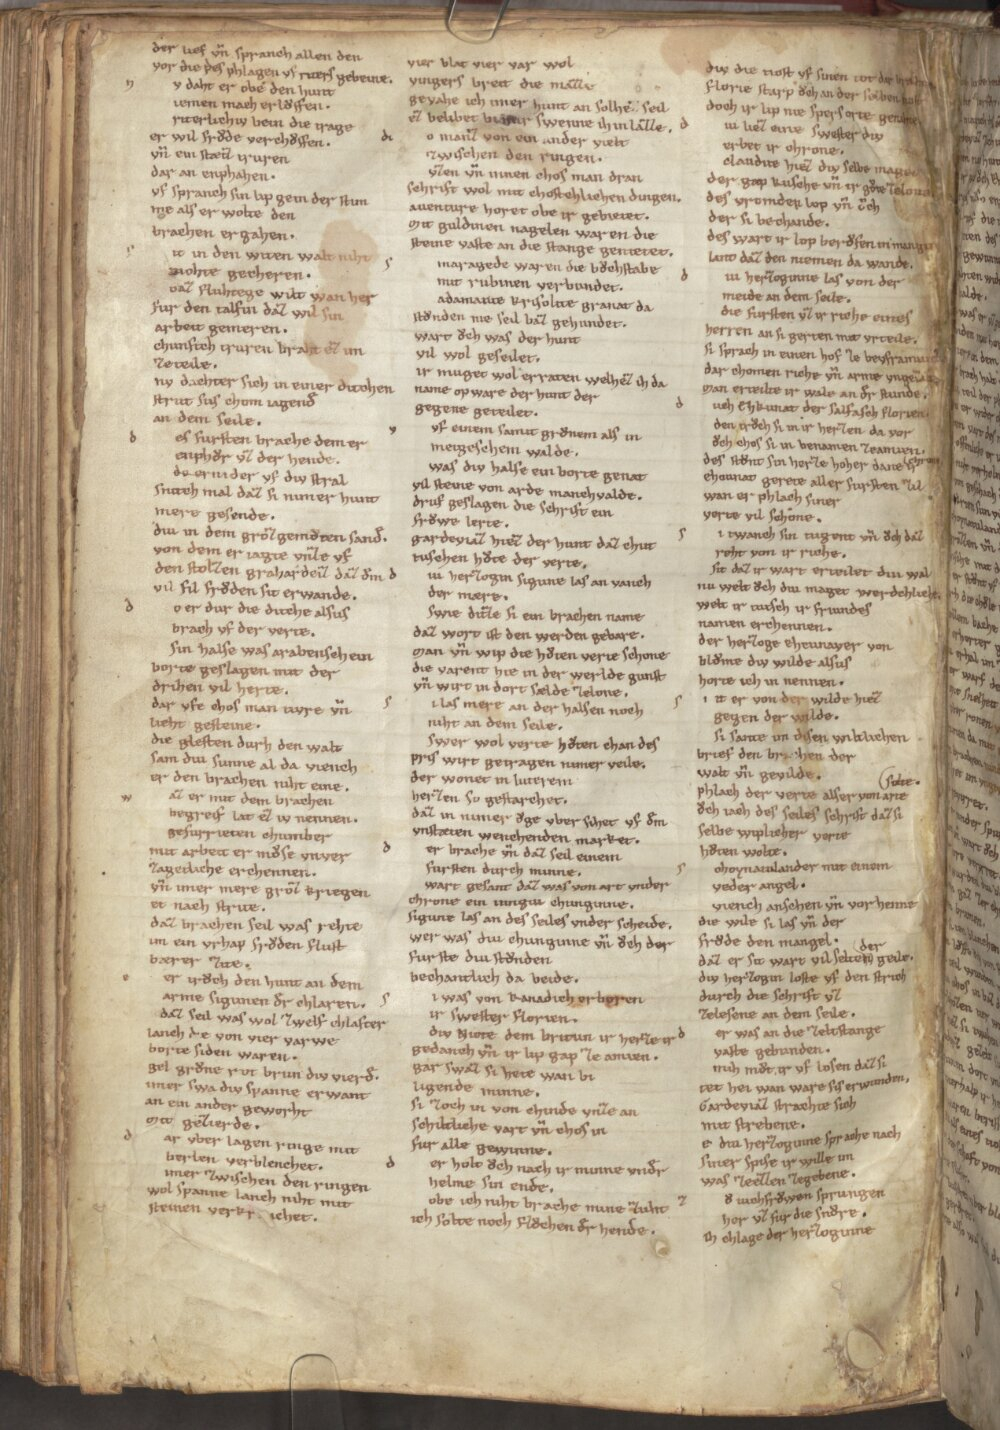 der lief vñ spranch allen den
vor die des phlagen vf ruers gebeine.
n y daht er obe den hunt
iemen mach erlŏsen.
riterlichiv bein die trage
er wil frŏde verchŏsen.
vñ ein stætez truren
dar an enphahen.
vf spranch sin lip gein der stim
me als er wolte den
brachen ergahen.
s it in den witen walt niht
mohte gecheren.
daz fluhtege wilt wan her
fur den talfin daz wil sin
arbeit gemeren.
chunftech truren braht ez im
ze teile.
nv dachter sich in einer dicchen
strut sus chom iagend
an dem seile.
d es fursten brache dem er
enphŏr vz der hende.
nider vf div stral
snitech mal daz si nimer hunt
mere gesende.
div in dem grozgemŏten sand.
von dem er iagte vnze vf
den stolzen grahardeiz daz dm
vil sil frŏden sit erwande.
d o er dur die dicche alsus
brach vf der verte.
sin halse was arabensch ein
borte geslagen mit der
drihen vil herte.
dar vfe chos man tivre vñ
lieht gesteine.
die glesten durh den walt
sam div sunne al da viench
er den brachen niht eine.
w az er mit dem brachen
begreif lat ez iv nennen.
gefurrieten chumber
mit arbeit er mŏse vnver
zagetliche erchennen.
vñ imer mere groz kriegen
et nach strite.
daz brachen seil was rehte
im ein vrhap frŏden fluft
bærer zite.
e er trŏch den hunt an dem
arme sigunen dr chlaren.
daz seil was wol zwelf chlafter
lanch die von vier varwe
borte siden waren.
gel grŏne rot brun div vierd.
imer swa div spanne erwant
an ein ander geworht
mit gezierde.
d ar vber lagen ringe mit
berlen verblenchet.
imer zwischen den ringen
wol spanne lanch niht mit
steinen verkrenchet.
vier blat vier var wol
vingers breit die mazze
gevahe ich imer hunt an solhez seil
ez belibet bi mir swenne ih in lazze.
do manz von ein ander vielt
zwischen den ringen.
vzen vñ innen chos man dran
schrift wol mit chostchlichen dingen.
auenture horet obe ir gebietet.
mit guldinen nagelen waren die
steine vaste an die stange genietet.
s maragede waren die bŏchstabe
mit rubinen verbundet.
adamante krisolite granat da
stŏnden nie seil baz gehundet.
wart ŏch was der hunt
vil wol geseilet.
ir muget wol erraten welhez ih da
name op ware der hunt der
gegene geteilet.
v vf einem samit grŏnem als in
meigeschem walde.
was div halse ein borte genat
vil steine von arde manechvalde.
druf geslagen die schrift ein
frŏwe lerte.
gardeviaz hiez der hunt daz chut
tuschen hŏte der verte.
d iu herzogin sigune las an vanch
der mære.
swie ditze si ein brachen name
daz wort ist den werden gebare.
man vñ wip die hŏten verte schone
die varent hie in der werlde gunst
vñ wirt in dort sælde zelone.
s i las mere an der halsen noch
niht an dem seile.
swer wol verte hŏten chan des
pris wirt getragen nimer veile.
der wonet in luterem
herzen so gestarchet.
daz in nimer ŏge vber sihet vf dm
vnstæten wenchenden market.
d er brache vñ daz seil einem
fursten durch minne.
wart gesant daz was von art vnder
chrone ein iungiu chuniginne.
sigune las an des seiles vnder scheide.
wer was div chuniginne vñ ŏch der
furste div stŏnden
bechantlich da beide.
s i was von kanadich erberen
ir swester florien.
div ylinote dem britun ir herze ir
gedanch vñ ir lip gap ze amien.
gar swaz si hete wan bi
ligende minne.
si zoch in von chinde vnze an
schiltliche vart vñ chos in
fur alle gewinne.
d er holt ŏch nach ir minne vndr
helme sin ende.
obe ich niht brache mine zuht
ich solte noch flŏchen dr hende.
div die tiost vf sinen tot dar brahte
florie starp ŏch an der selben tiost
doch ir lip nie spers orte genahte
d iu liez eine swester div
erbet ir chrone.
claudite hiez div selbe maget
der gap kusche vñ ir gŏte zelone
des vremder lop vñ ŏch
der si bechande.
des wart ir lop berŏfen in manich
lant daz den niemen da wande.
d iu herzoginne las von der
meide an dem seile.
die fursten vz ir riche eines
herren an si gerten mit vrteile.
si sprach in einen hof ze beyframunde
dar chomen riche vñ arme vngezalt
man erteilte ir wale an dr stunde.
d uch Ehkunat der salfasch florien
den trŏch si in ir herzen da vor
ŏch chos si in benamen zeamien.
des stŏnt sin herze hoher danne ir
ehcunat gerete aller fursten zil
wan er phlach siner
verte vil schone.
s i twanch sin tugent vñ ŏch daz
reht von ir riche.
sit daz ir wart erteilet div wal
nu welt ŏch div maget werdechliche.
welt ir tutsch ir friundes
namen erchennen.
der herzoge ehcunaver von
blŏme div wilde alsus
horte ich in nennen.
s i it er von der wilde hiez
gegen der wilde.
si sante im disen wiltlichen
brief den brachen der
walt vñ gevilde. (solte.
phlach der verte alser von arte
ŏch iach des seiles schrift daz si
selbe wiplicher verte
hŏten wolte.
s choynatulander mit einem
veder angel.
viench anschen vñ vorhenne
die wile si las vñ der
frŏde den mangel. (der
daz er sit wart vil selten geile.
div herzogin loste vf den strich
durch die schrift vz
zelesene an dem seile.
d er was an die zeltstange
vaste gebunden.
mih mŏt ir vf losen daz si
tet hei wan ware sis erwunden.
Gardeviaz strachte sich
mit strebene.
e div herzoginne sprache nach
siner spise ir wille im
was zezzen zegebene.
z ŏ inchfrŏwen sprungen
her vz fur die snŏre.
ih chlage der herzoginne